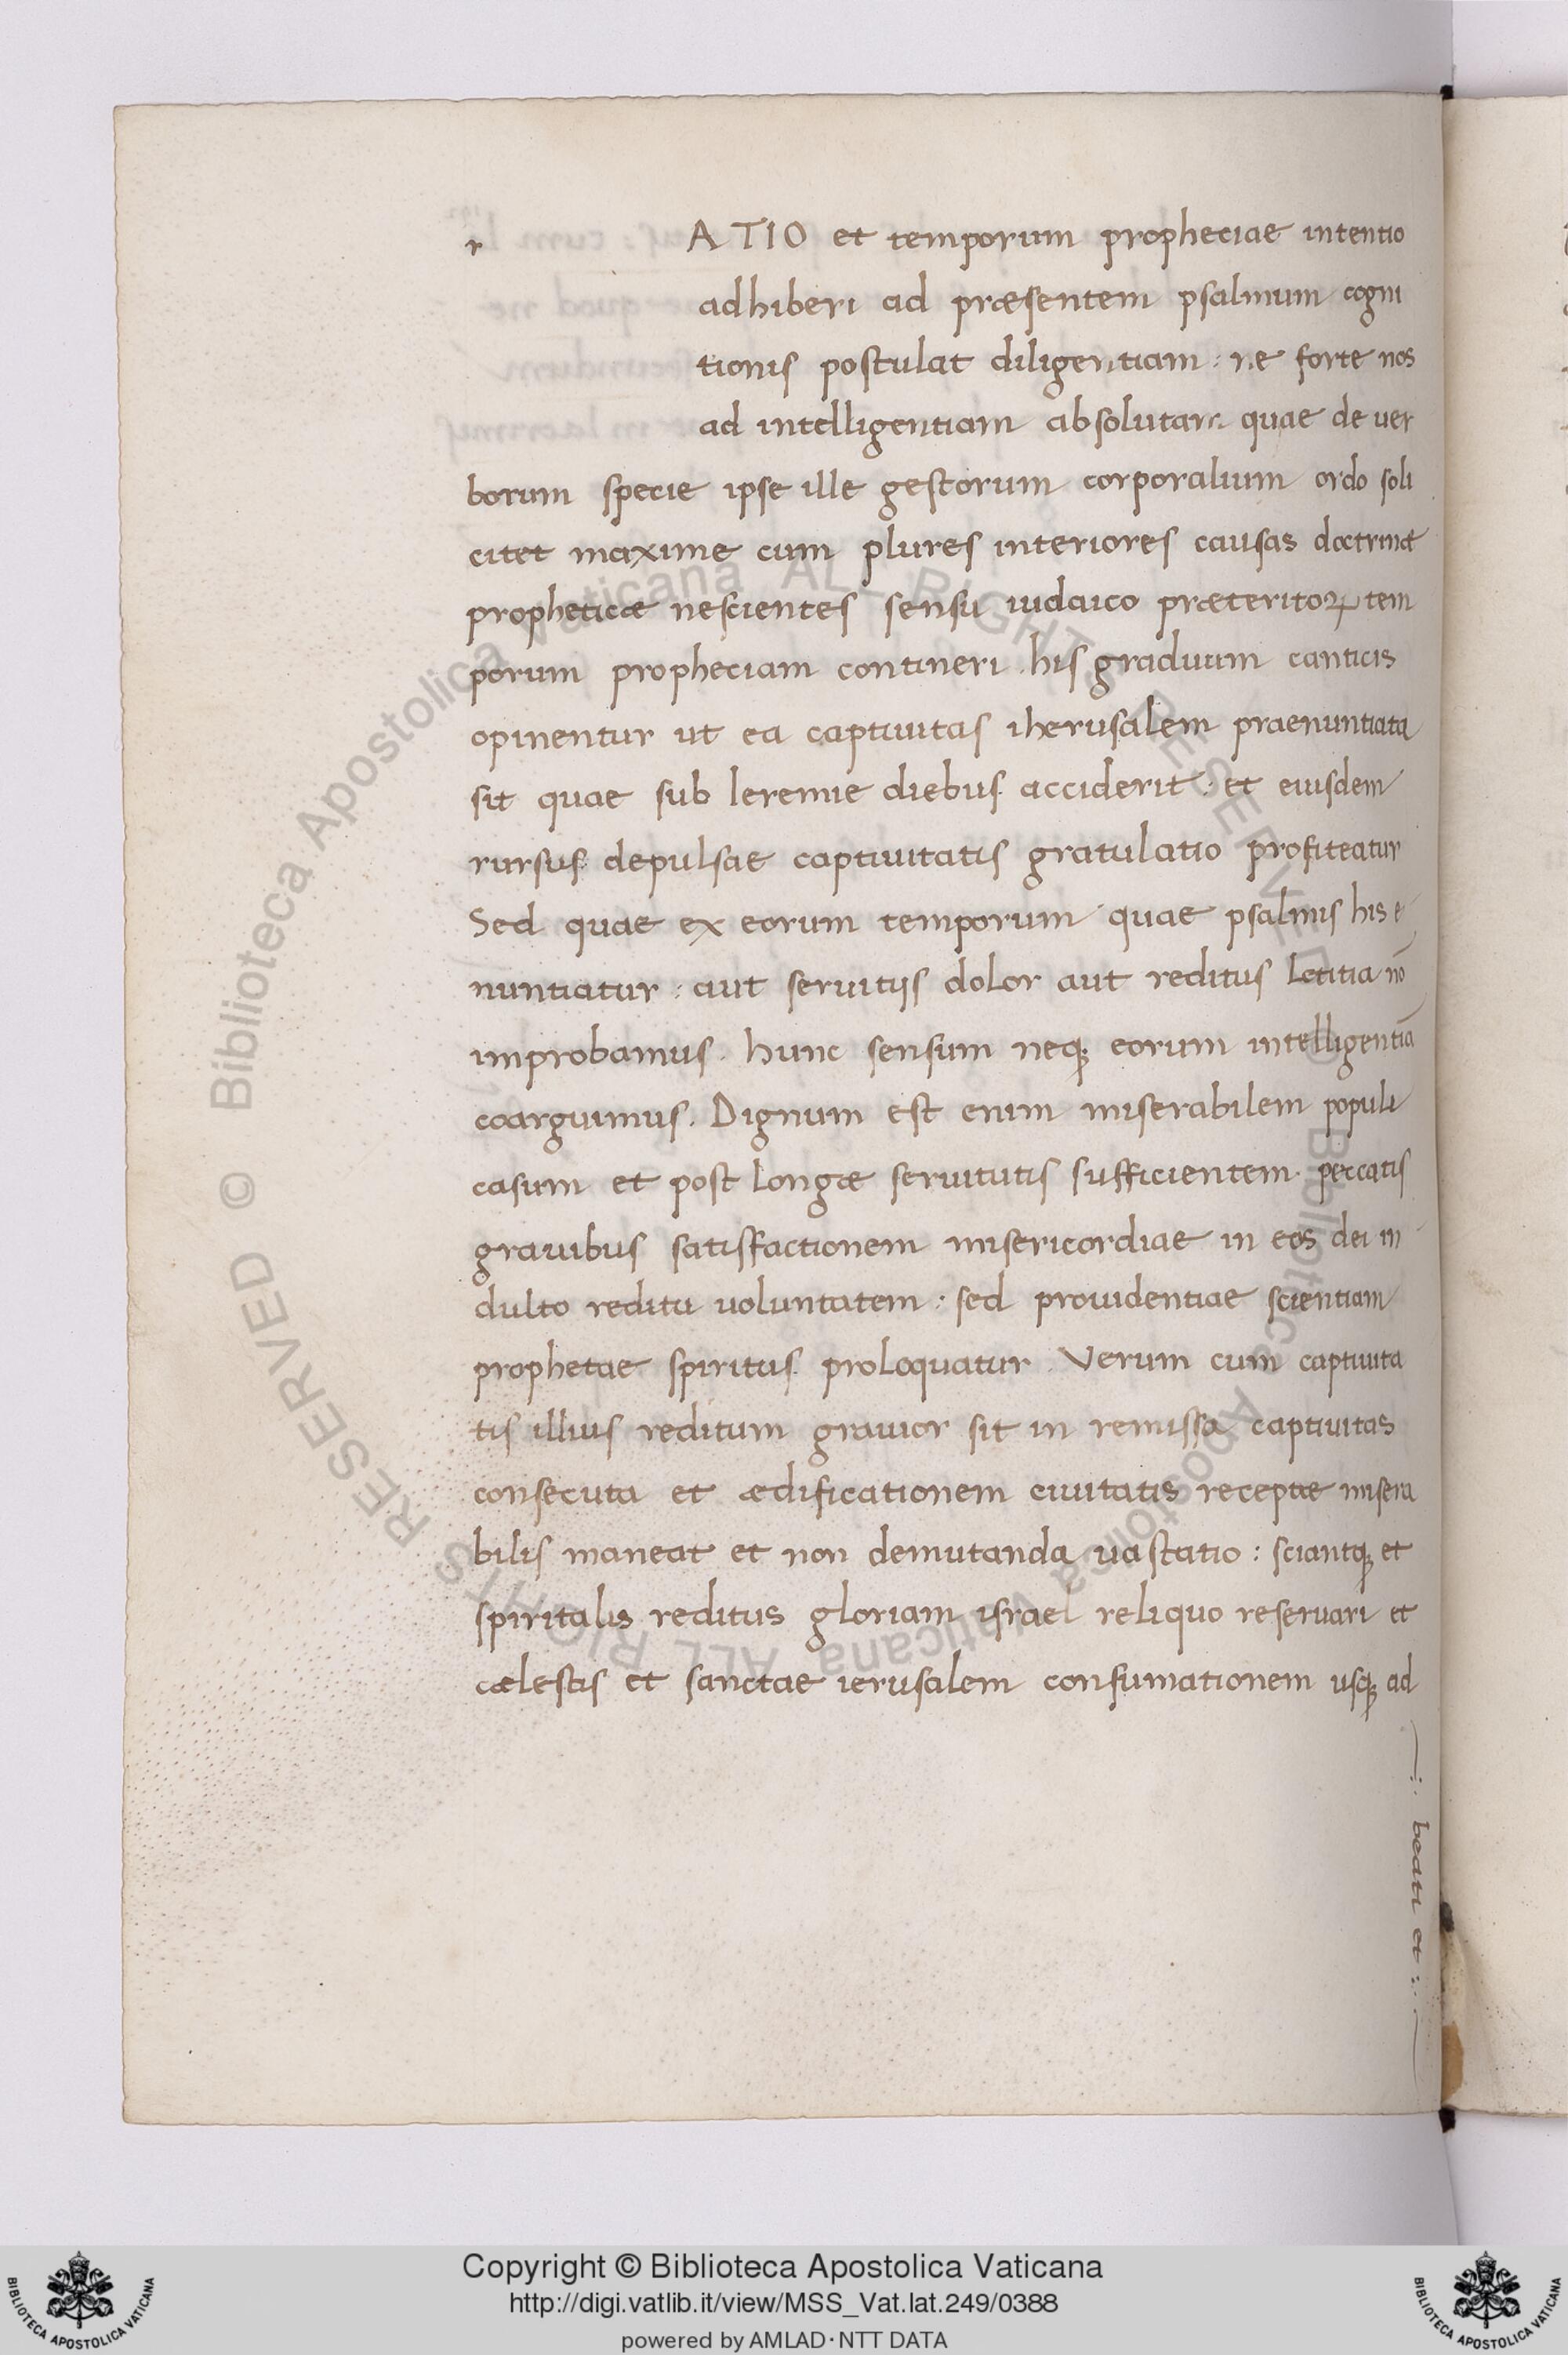 r ATIO et temporum propheciae intentio
adhiberi ad præsentem psalmum cogni
tionis postulat diligentiam : ne forte nos
ad intelligentiam absolutam quae de ver
borum specie ipse ille gestorum corporalium ordo soli
citet maxime cum plures interiores causas doctrinæ
propheticæ nescientes sensu iudaico præteritoꝝ tem
porum propheciam contineri . his graduum canticis
opinentur ut ea captiuitas iherusalem praenuntiata
sit quae sub Ieremie diebus acciderit : et eiusdem
rursus depulsae captiuitatis gratulatio profiteatur
Sed quae ex eorum temporum quae psalmis his e
nuntiatur : aut seruitijs dolor aut reditus letitia nō
improbamus . hunc sensum neqꝫ eorum intelligentiā
coarguimus . Dignum est enim miserabilem populi
casum et post longæ seruitutis sufficientem peccatis
grauibus satisfactionem misericordiae in eos dei in
dulto reditu uoluntatem : sed prouidentiae scientiam
prophetae spiritus proloquatur . Verum cum captiuita
tis illius reditum grauior sit in remissa captiuitas
consecuta et ædificationem ciuitatis receptæ misera
bilis maneat et non demutanda uastatio : sciantqꝫ et
spiritalis reditus gloriam israel reliquo reseruari et
cælestis et sanctae ierusalem consumationem usqꝫ ad
beati et
© Biblioteca Apostolica Vaticana ALL RIGHTS RESERVED
© Biblioteca Apostolica Vaticana ALL RIGHTS RESERVED
Copyright © Biblioteca Apostolica Vaticana
http://digi.vatlib.it/view/MSS_Vat.lat.249/0388
powered by AMLAD·NTT DATA
BIBLIOTECA APOSTOLICA VATICANA
BIBLIOTECA APOSTOLICA VATICANA